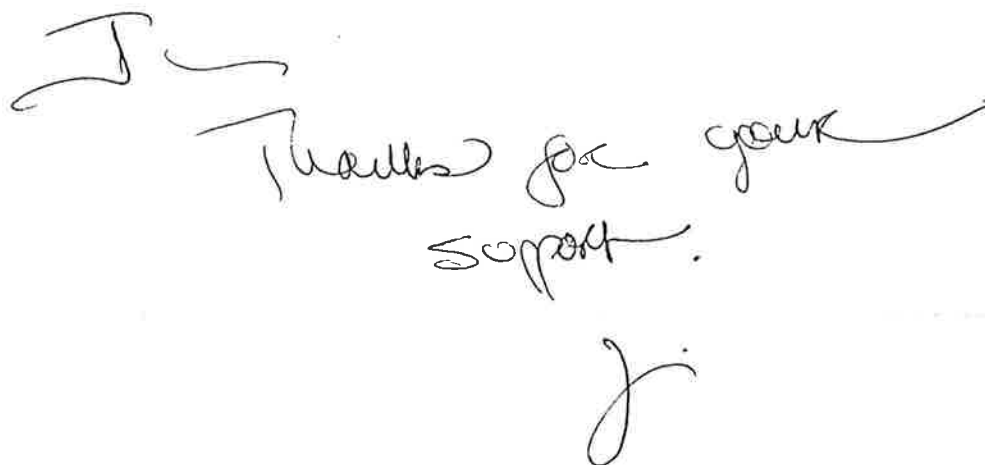 Thanks for your
support.